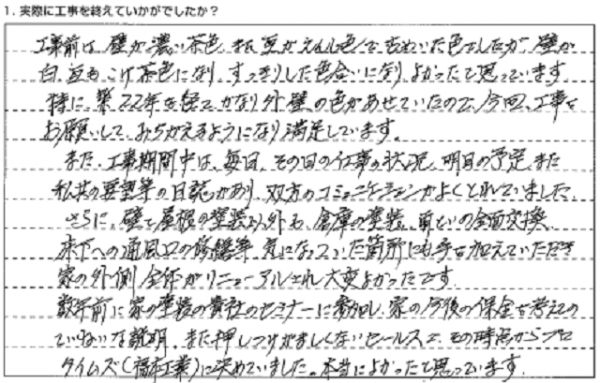 1. 実際に工事を終えていかがでしたか？
工事前は、壁が濃い茶色、また、瓦がえんじ色で 色でしたが、壁が
白、瓦も、こげ茶色になり、すっきりした色合いになり、よかったと思っています。
特に、築22年を経て、かなり外壁の色があせていたので、今回、工事を
お願いして、みちがえるようになり満足しています。
また、工事期間中は、毎日、その日の仕事の状況、明日の予定、また
私共の要望等の日誌があり、双方のコミュニケーションがよくとれていました。
さらに、壁と屋根の塗装以外も、倉庫の塗装、雨といの全面交換、
床下への通風口の修繕等、気になっていた箇所にも手を加えていただき
家の外側全体がリニューアルされ大変よかったです。
数年前に家の塗装の貴社のセミナーに参加し、家の今後の保全を考えての
ていねいな説明、また押しつけがましくないセールスで、その時点からプロ
タイムズ(橋本工業)に決めていました。本当によかったと思っています。